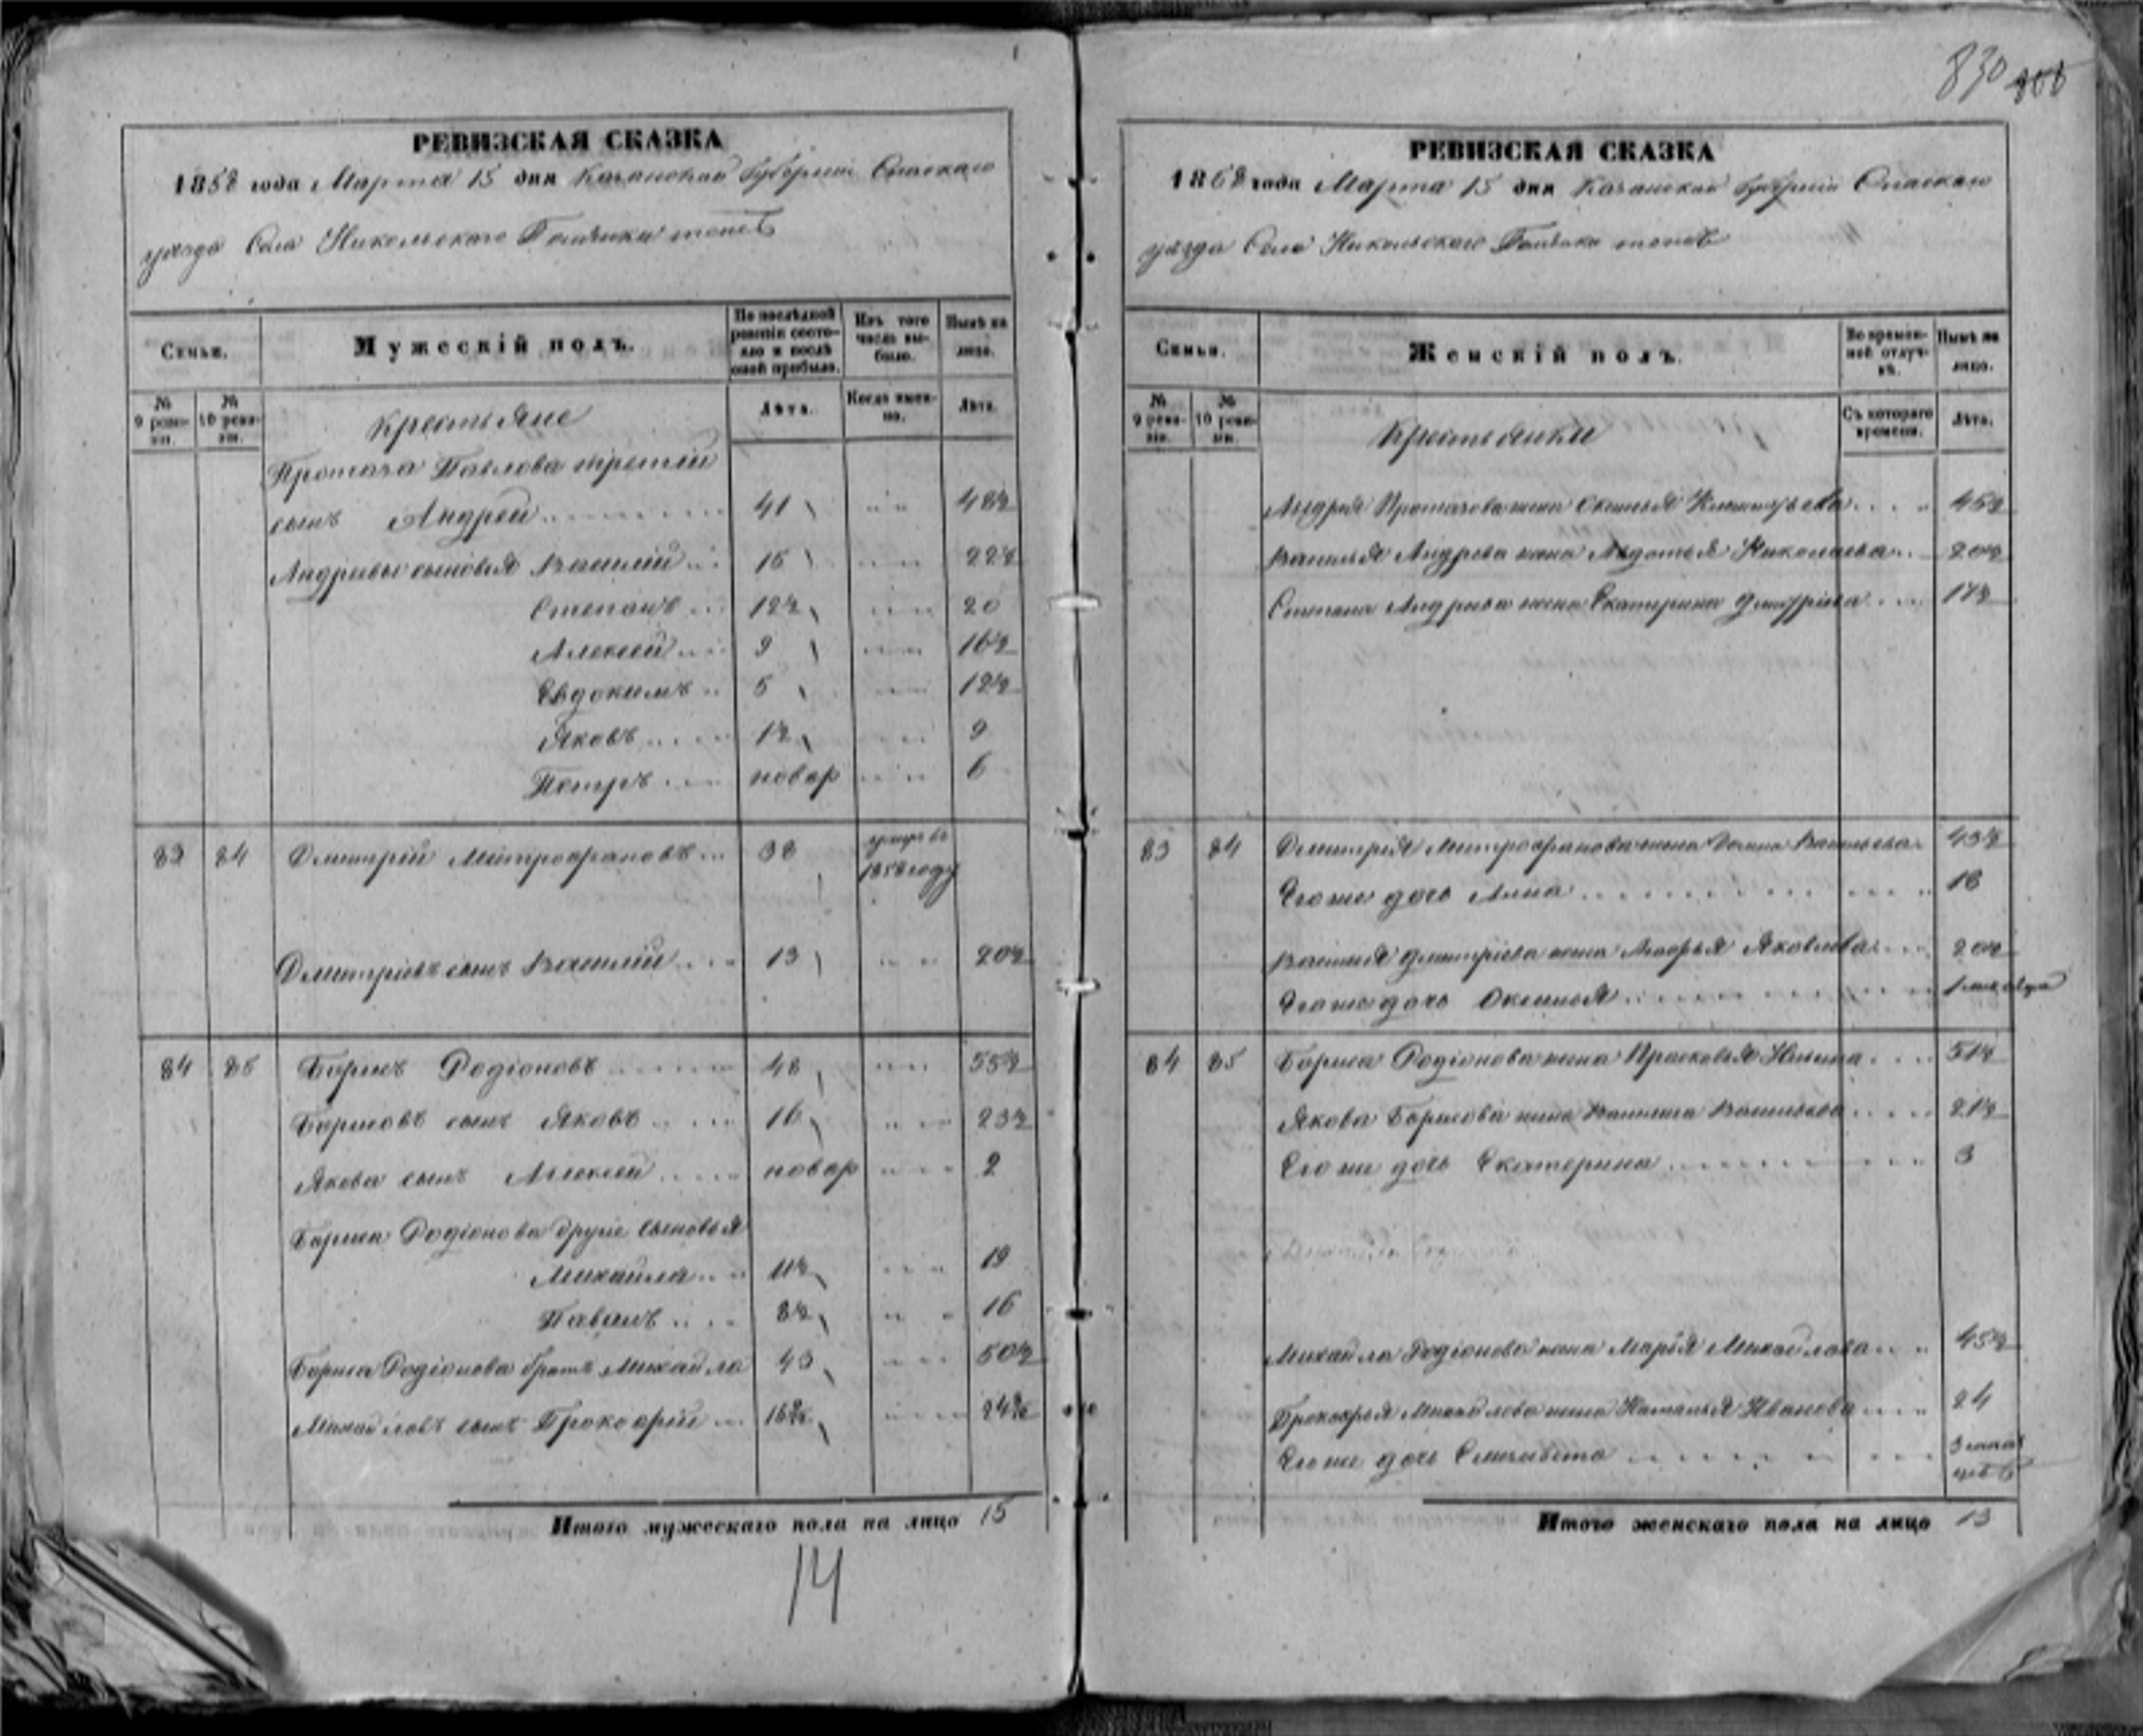 830
РЕВИЗСКАЯ СКАЗКА
1858 года Марта 15 дня Казанской губернии Спаскаго
уезда Села Никольскаго тожъ
Семьи.
Мужескій полъ.
По послѣдней ревизіи состояло и послѣ оной прибыло.
Изъ того числа выбыло.
Нынѣ на лицо.
№ 9 ревизіи.
№ 10 ревизіи.
Крестьяне
Лѣта.
Когда именно.
Лѣта.
Павлова третій
сынъ Андрей 41 48½
Андреевы сыновья Василій 15 22½
Степанъ 12½ 20
Алексей 9 16½
Евдокимъ 5 12½
Яковъ 1½ 9
Петръ новор 6
83 84 Дмитрій Митрофановъ 38 умеръ въ
1858 году
Дмитріевъ сынъ Василій 13 20½
84 85 Борисъ Родіоновъ 48 55½
Борисовъ сынъ Яковъ 16 23½
Якова сынъ Алексей новор 2
Бориса Родіонова другіе сыновья
Михайла 11½ 19
Павелъ 8½ 16
Бориса Родіонова братъ Михайла 43 50½
Михайловъ сынъ Прокофій
Итого мужескаго пола на лицо 15
14
РЕВИЗСКАЯ СКАЗКА
1858 года Марта 15 дня Казанской губерніи Спаскаго
уезда Села Никольскаго тожъ
Семьи.
Женскій полъ.
Во временной отлучкѣ.
Нынѣ на лицо.
№ 9 ревизіи.
№ 10 ревизіи.
Крестьянки
Съ котораго времени.
Лѣта.
Андрея жена 45½
Василья Андреева жена Авдотья Николаева 20½
Степана Андреева жена Екатерина Дмитріева 17½
83 84 Дмитрія Митрофанова жена Васильева 43½
Его же дочь Анна 18
Василья Дмитріева жена Яковлева 20½
Его же дочь Оксинья
84 85 Бориса Родіонова жена Прасковья 51½
Якова Борисова жена Василиса Васильева 21½
Его же дочь Екатерина 3
Михайла Родіонова жена Марья Михайлова 45½
Прокофья Михайлова жена Наталья Иванова 24
Его же дочь Елизавета
Итого женскаго пола на лицо 13